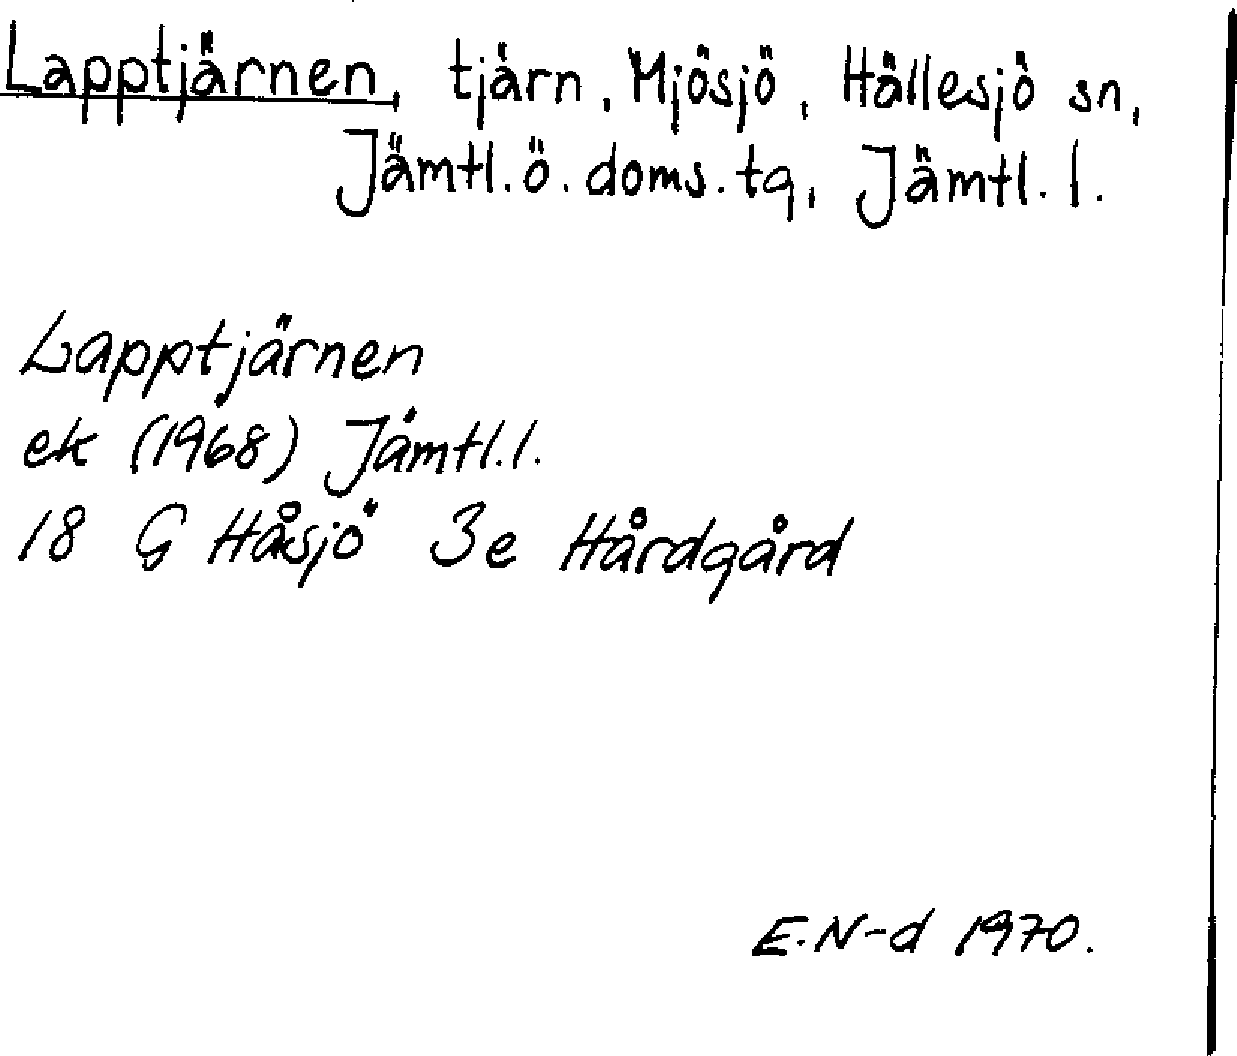 Lapptjärnen, tjärn, Mjösjö, Hällesjö sn,
Jämtl. ö. doms. tg, Jämtl. l.
Lapptjärnen
ek (1968) Jämtl. l.
18 G Håsjö 3e Hårdgård
E. N-d 1970.